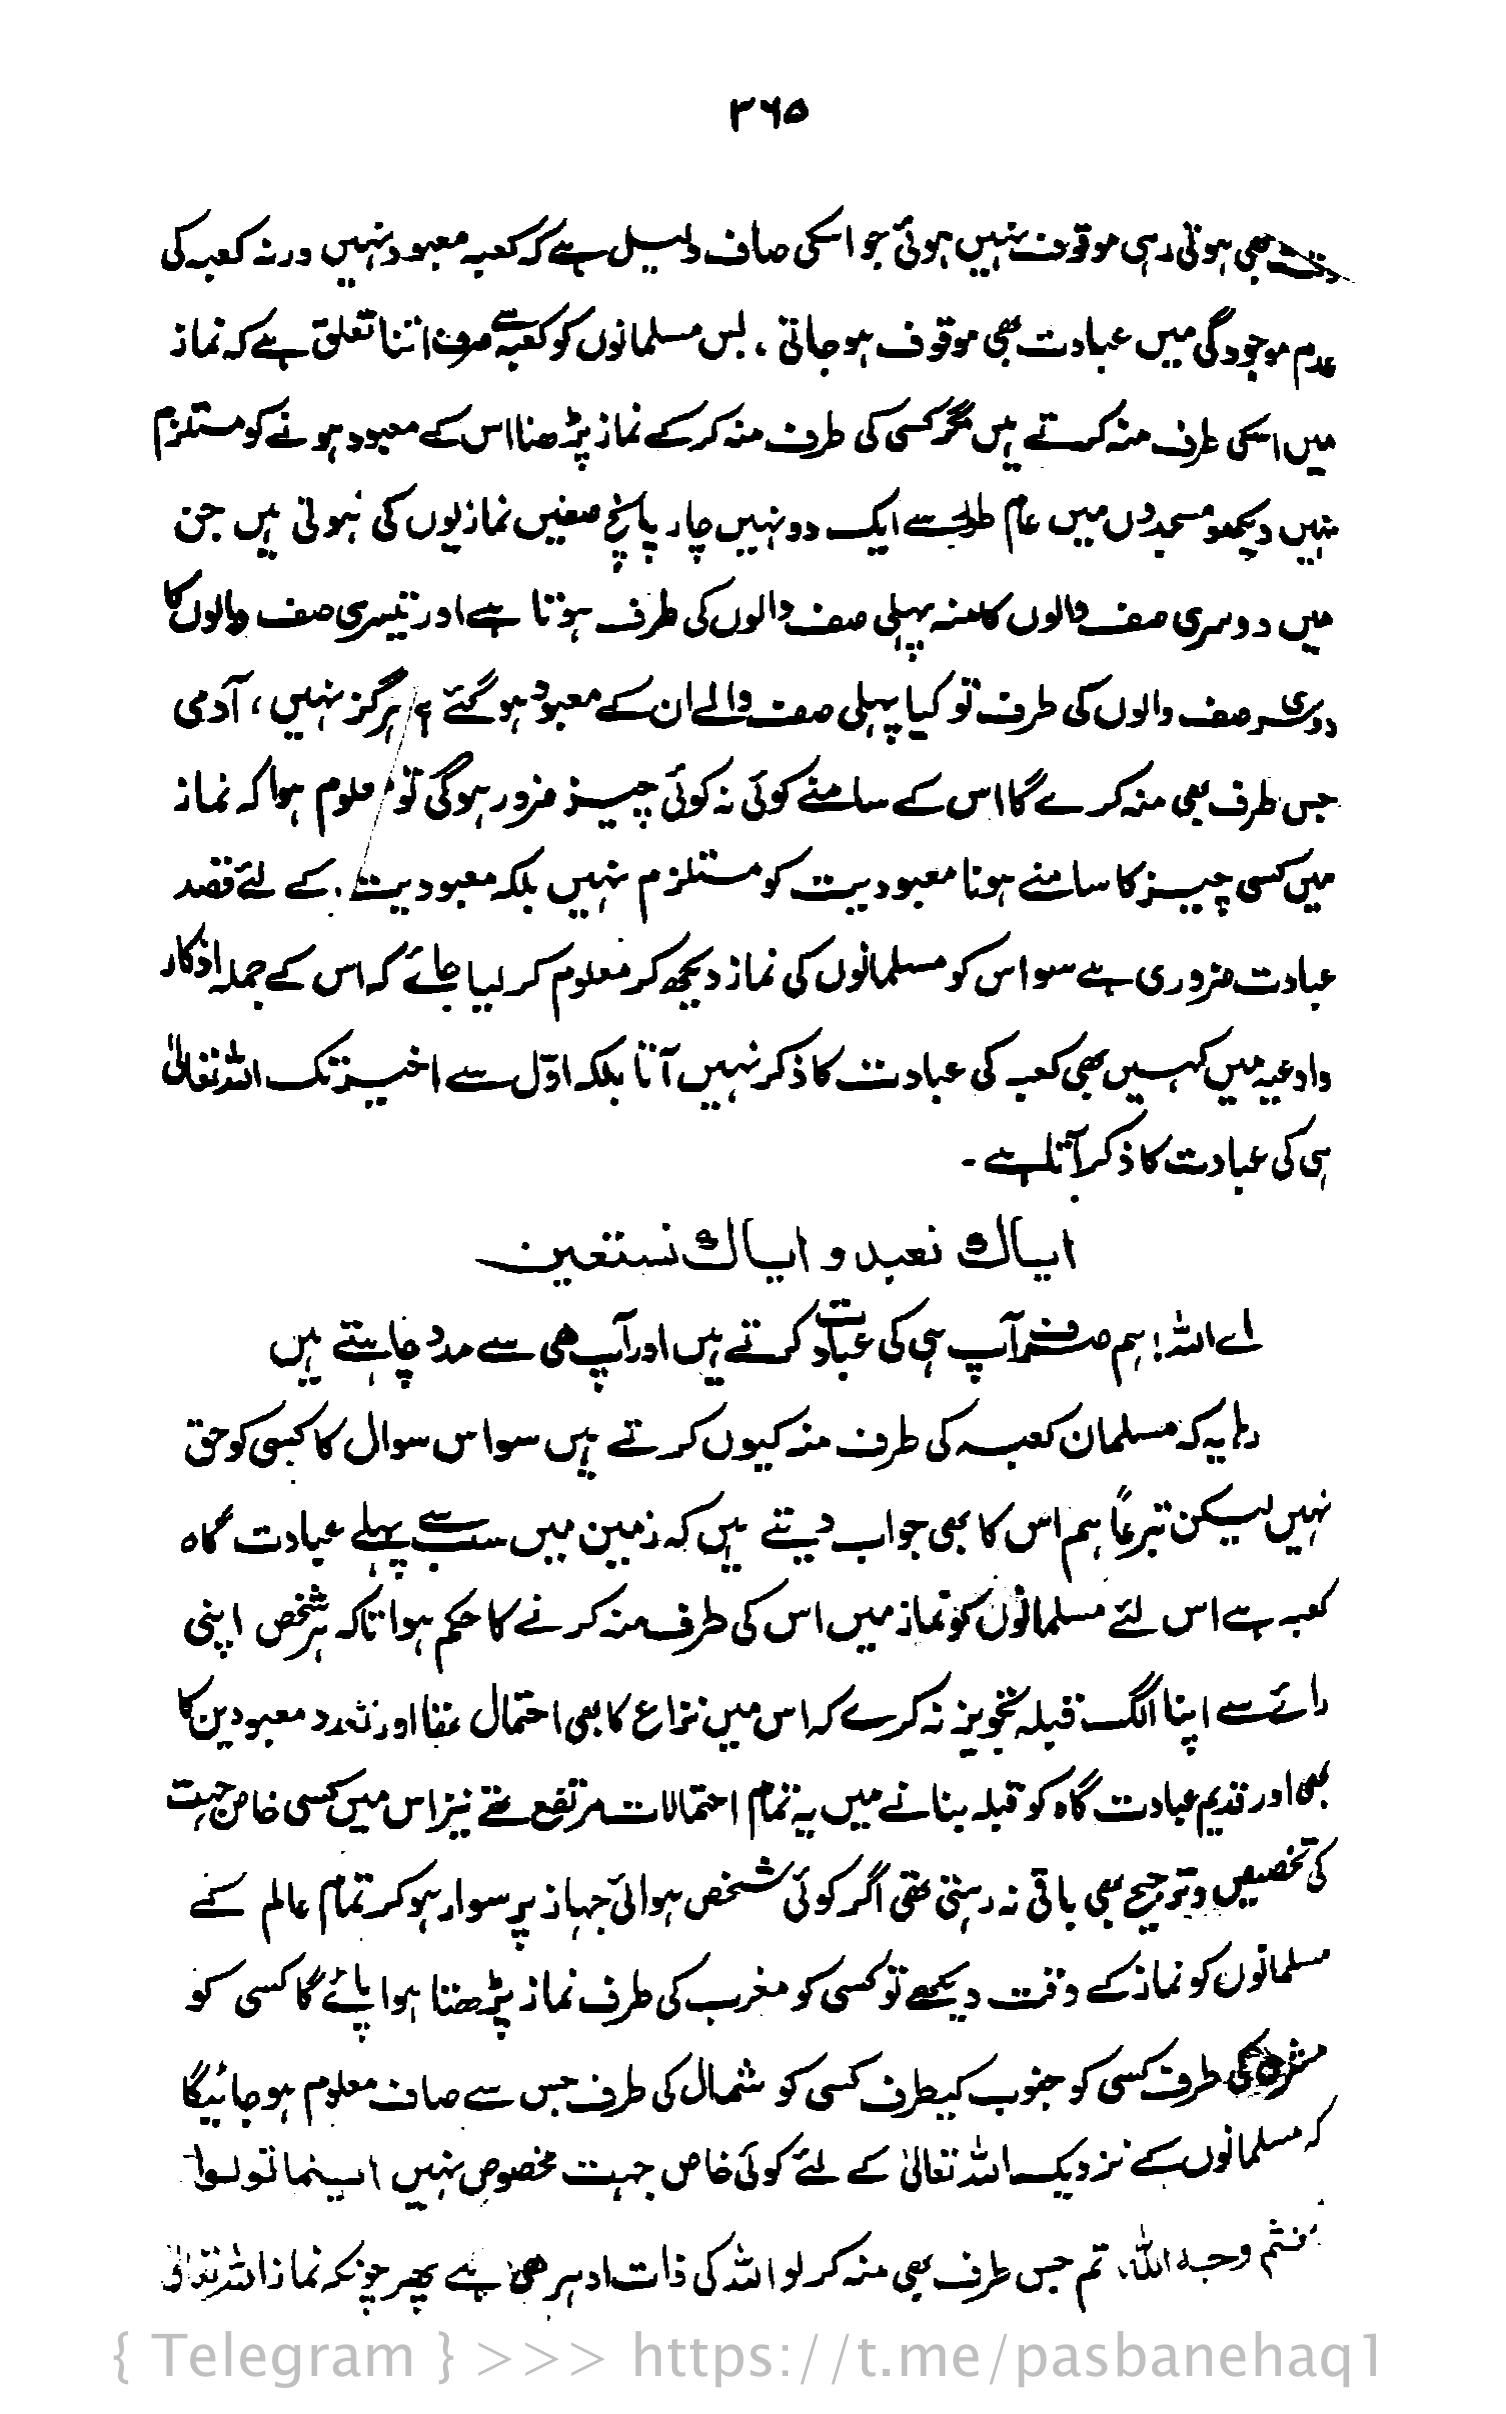 ۳۶۵
وقت بھی ہوتی رہی موقوف نہیں ہوئی جو اسکی صاف دلیل ہے کہ کعبہ معبود نہیں ورنہ کعبہ کی
عدم موجودگی میں عبادت بھی موقوف ہو جاتی ، بس مسلمانوں کو کعبہ سے صرف اتنا تعلق ہے کہ نماز
میں اسکی طرف منہ کرتے ہیں مگر کسی کی طرف منہ کر کے نماز پڑھنا اس کے معبود ہونے کو مستلزم
نہیں دیکھو مسجدوں میں عام طور سے ایک دو نہیں چار پانچ صفیں نمازیوں کی ہوتی ہیں جن
میں دوسری صف والوں کا منہ پہلی صف والوں کی طرف ہوتا ہے اور تیسری صف والوں کا
دوسری صف والوں کی طرف تو کیا پہلی صف والے ان کے معبود ہو گئے ؟ ہرگز نہیں ، آدمی
جس طرف بھی منہ کرے گا اس کے سامنے کوئی نہ کوئی چیز ضرور ہوگی تو معلوم ہوا کہ نماز
میں کسی چیز کا سامنے ہونا معبودیت کو مستلزم نہیں بلکہ معبودیت کے لئے قصد
عبادت ضروری ہے سو اس کو مسلمانوں کی نماز دیکھ کر معلوم کر لیا جائے کہ اس کے جملہ اذکار
وادعیہ میں کہیں بھی کعبہ کی عبادت کا ذکر نہیں آتا بلکہ اوّل سے اخیر تک اللہ تعالیٰ
ہی کی عبادت کا ذکر آتا ہے ۔
ایاك نعبد و ایاك نستعین
اے اللہ ! ہم صرف آپ ہی کی عبادت کرتے ہیں اور آپ ھی سے مدد چاہتے ہیں
رہا یہ کہ مسلمان کعبہ کی طرف منہ کیوں کرتے ہیں سو اس سوال کا کسی کو حق
نہیں لیکن تبرعاً ہم اس کا بھی جواب دیتے ہیں کہ زمین میں سب سے پہلے عبادت گاہ
کعبہ ہے اس لئے مسلمانوں کو نماز میں اس کی طرف منہ کرنے کا حکم ہوا تاکہ ہر شخص اپنی
رائے سے اپنا الگ قبلہ تجویز نہ کرے کہ اس میں نزاع کا بھی احتمال تھا اور تعدد معبودین کا
بھی اور قدیم عبادت گاہ کو قبلہ بنانے میں یہ تمام احتمالات مرتفع تھے نیز اس میں کسی خاص جہت
کی تخصیص و ترجیح بھی باقی نہ رہتی تھی اگر کوئی شخص ہوائی جہاز پر سوار ہو کر تمام عالم کے
مسلمانوں کو نماز کے وقت دیکھے تو کسی کو مغرب کی طرف نماز پڑھتا ہوا پائے گا کسی کو
مشرق کی طرف کسی کو جنوب کیطرف کسی کو شمال کی طرف جس سے صاف معلوم ہو جائیگا
کہ مسلمانوں کے نزدیک اللہ تعالیٰ کے لئے کوئی خاص جہت مخصوص نہیں اینما تولوا
فثم وجہ اللہ، تم جس طرف بھی منہ کر لو اللہ کی ذات ادہر ھی ہے پھر چونکہ نماز اللہ تعالیٰ
{ Telegram } >>> https://t.me/pasbanehaq1